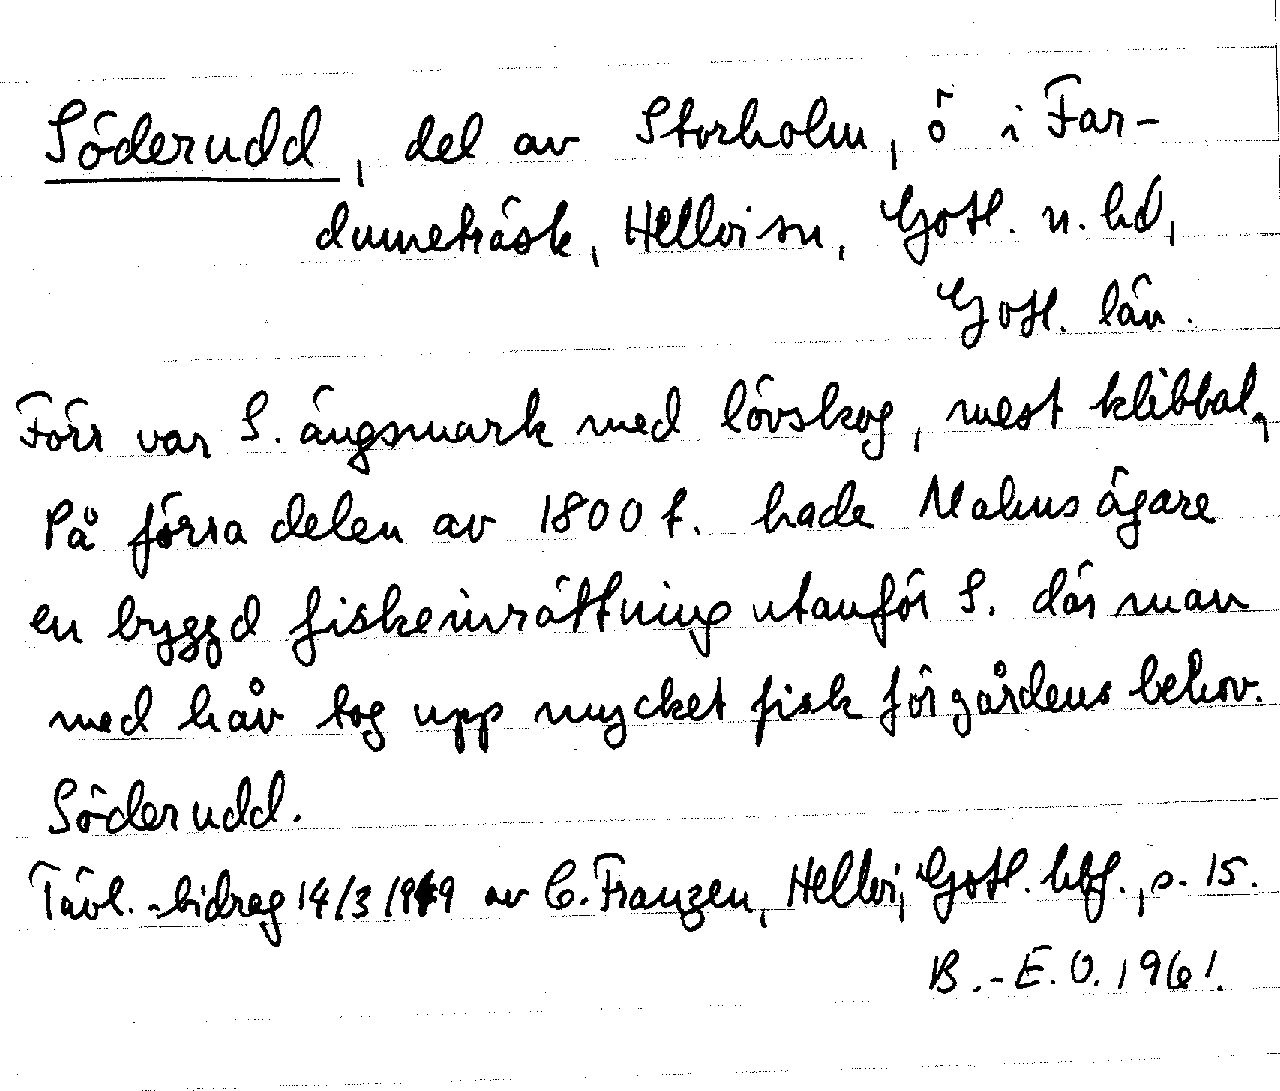 Söderudd, del av Storholm, ö i Far-
dumeträsk, Hellvi sn, Gotl. n. hd,
Gotl. län.
Förr var S. ängsmark med lövskog, mest klibbal,
På förra delen av 1800 t. hade Malms ägare
en byggd fiskeinrättning utanför S. där man
med håv tog upp mycket fisk för gårdens behov.
Söderudd.
Tävl.-bidrag 14/3 1949 av C. Franzen, Hellvi, Gotl. hbf., s. 15.
B.-E. O. 1961.